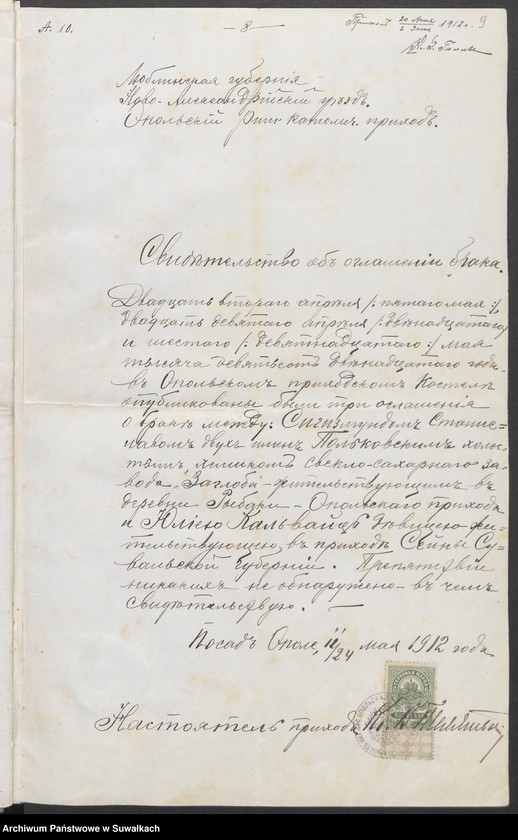 А. 10.
— 8 —
20 мая
2 1912 г. 9
Люблинская губернiя
Ново-Александрiйскiй уѣздъ.
Опольскiй рим. католич. приходъ.
Свидѣтельство объ оглашенiи брака.
Двадцать втораго апрѣля /: пятаго мая :/,
двадцать девятаго апрѣля /: двѣнадцатаго/
и шестаго /: девятнадцатаго :/ мая
тысяча девятьсотъ двѣнадцатаго года
въ Опольскомъ приходскомъ Костелѣ
опубликованы были три оглашенiя
о бракѣ между: Сигизмундомъ Станис-
лавомъ двухъ именъ Польковскимъ холос-
тымъ, химикомъ свекло-сахарнаго за-
вода „Заглоба" – жительствующимъ въ
деревни Рыбари – Опольскаго прихода
и Юлiею Кальвайцъ дѣвицею жи-
тельствующею въ приходѣ Сейны Су-
валькской Губернiи. Препятствiй
никакихъ не обнаружено – въ чемъ
свидѣтельствую. —
Посадъ Ополе, 11/24 мая 1912 года
Настоятель прихода
Archiwum Państwowe w Suwałkach